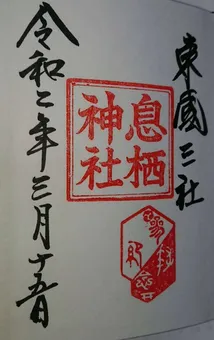 東國三社
息栖
神社
参拝
記念
令和二年三月十五日